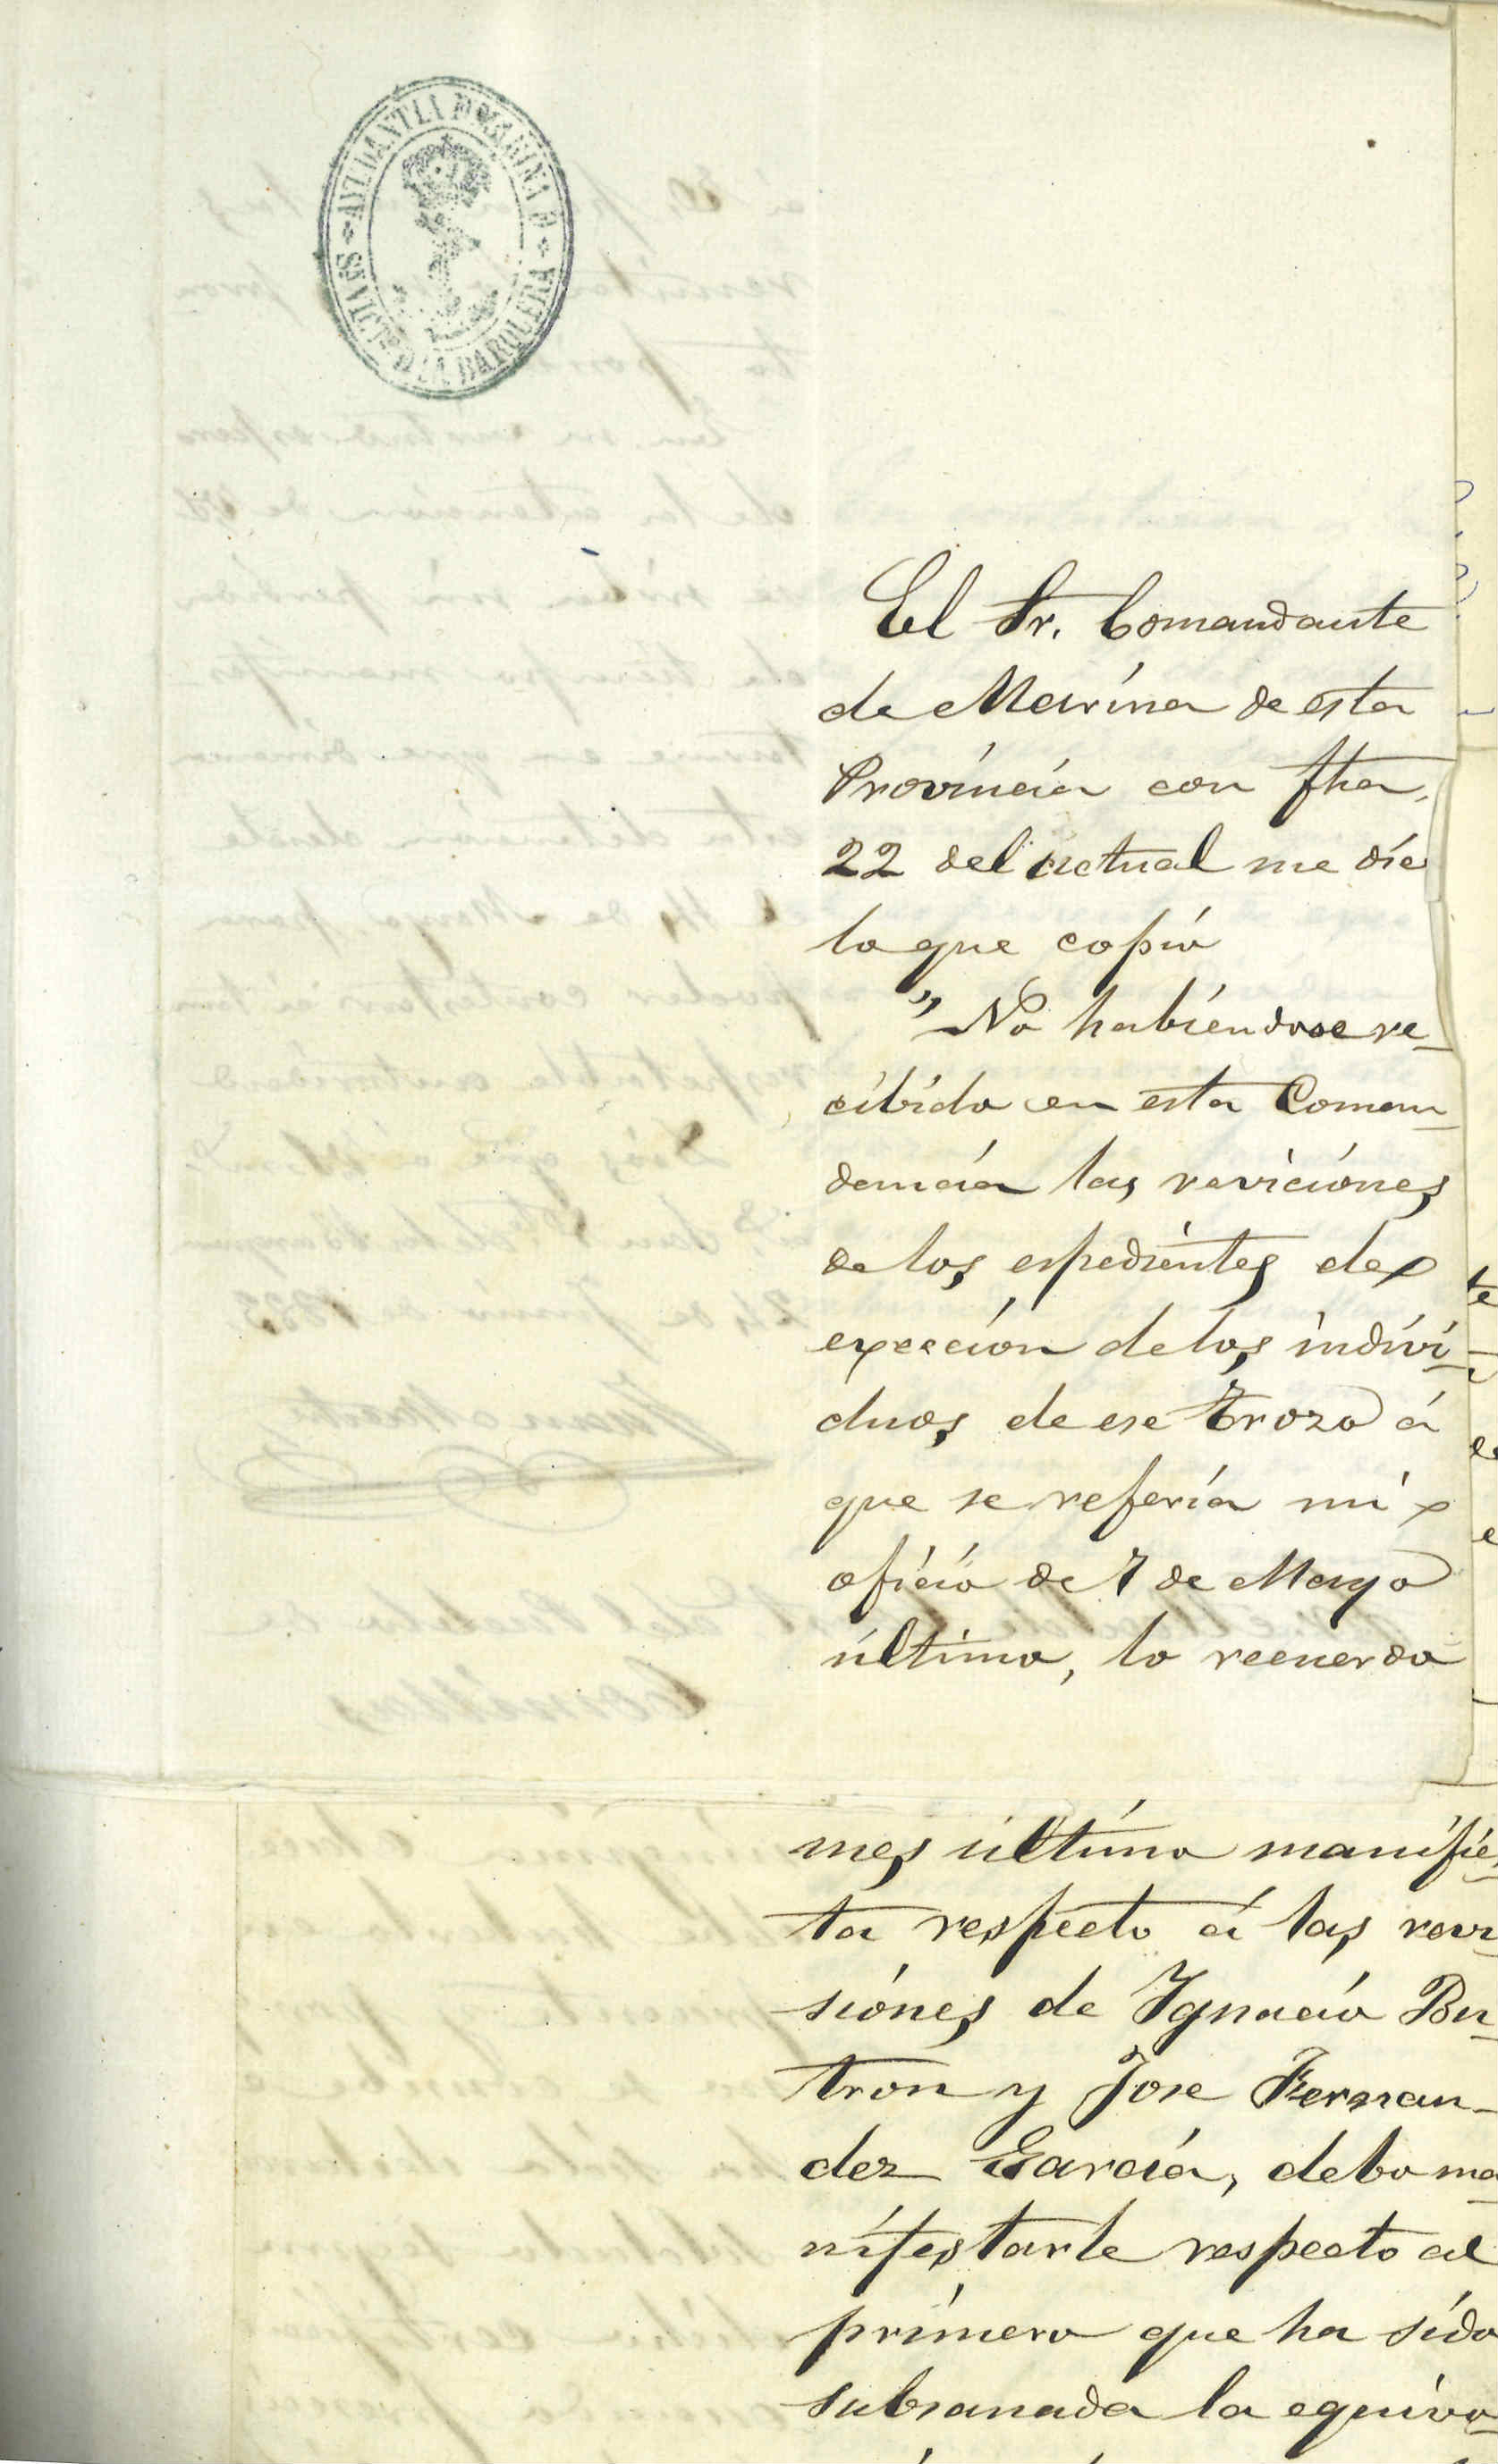 AYUDANTIA DE MARINA D
SN VICTE D LA BARQUERA
El Sr. Comandante
de Marina de esta
Provincia con fha.
22 del actual me dic
lo que copio
"No habiendose re_
cibido en esta Coman_
dancia las reviciones
de los espedientes de
execcion de los indivi_
duos de ese trozo á
que se refería mi
oficio de 7 de Mayo
último, lo recuerda
mes último manifies_
ta respecto á las revi_
siones de Ignacio Bu_
tron y Jose Fernan_
dez García, debo ma_
nifestarle respecto al
primero que ha sido
subsanada la equivo_